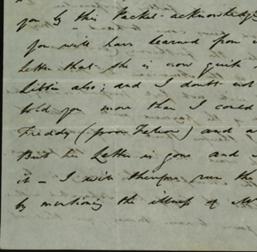 you by this Packet acknowledg
you will have learned from
letter that she is now quit
Littin also; and I doubt not
told you more than I could
Freddy (poor Fellow) and a
But his Letter is gone and
it - I will therefore run the
by mentioning the illness of